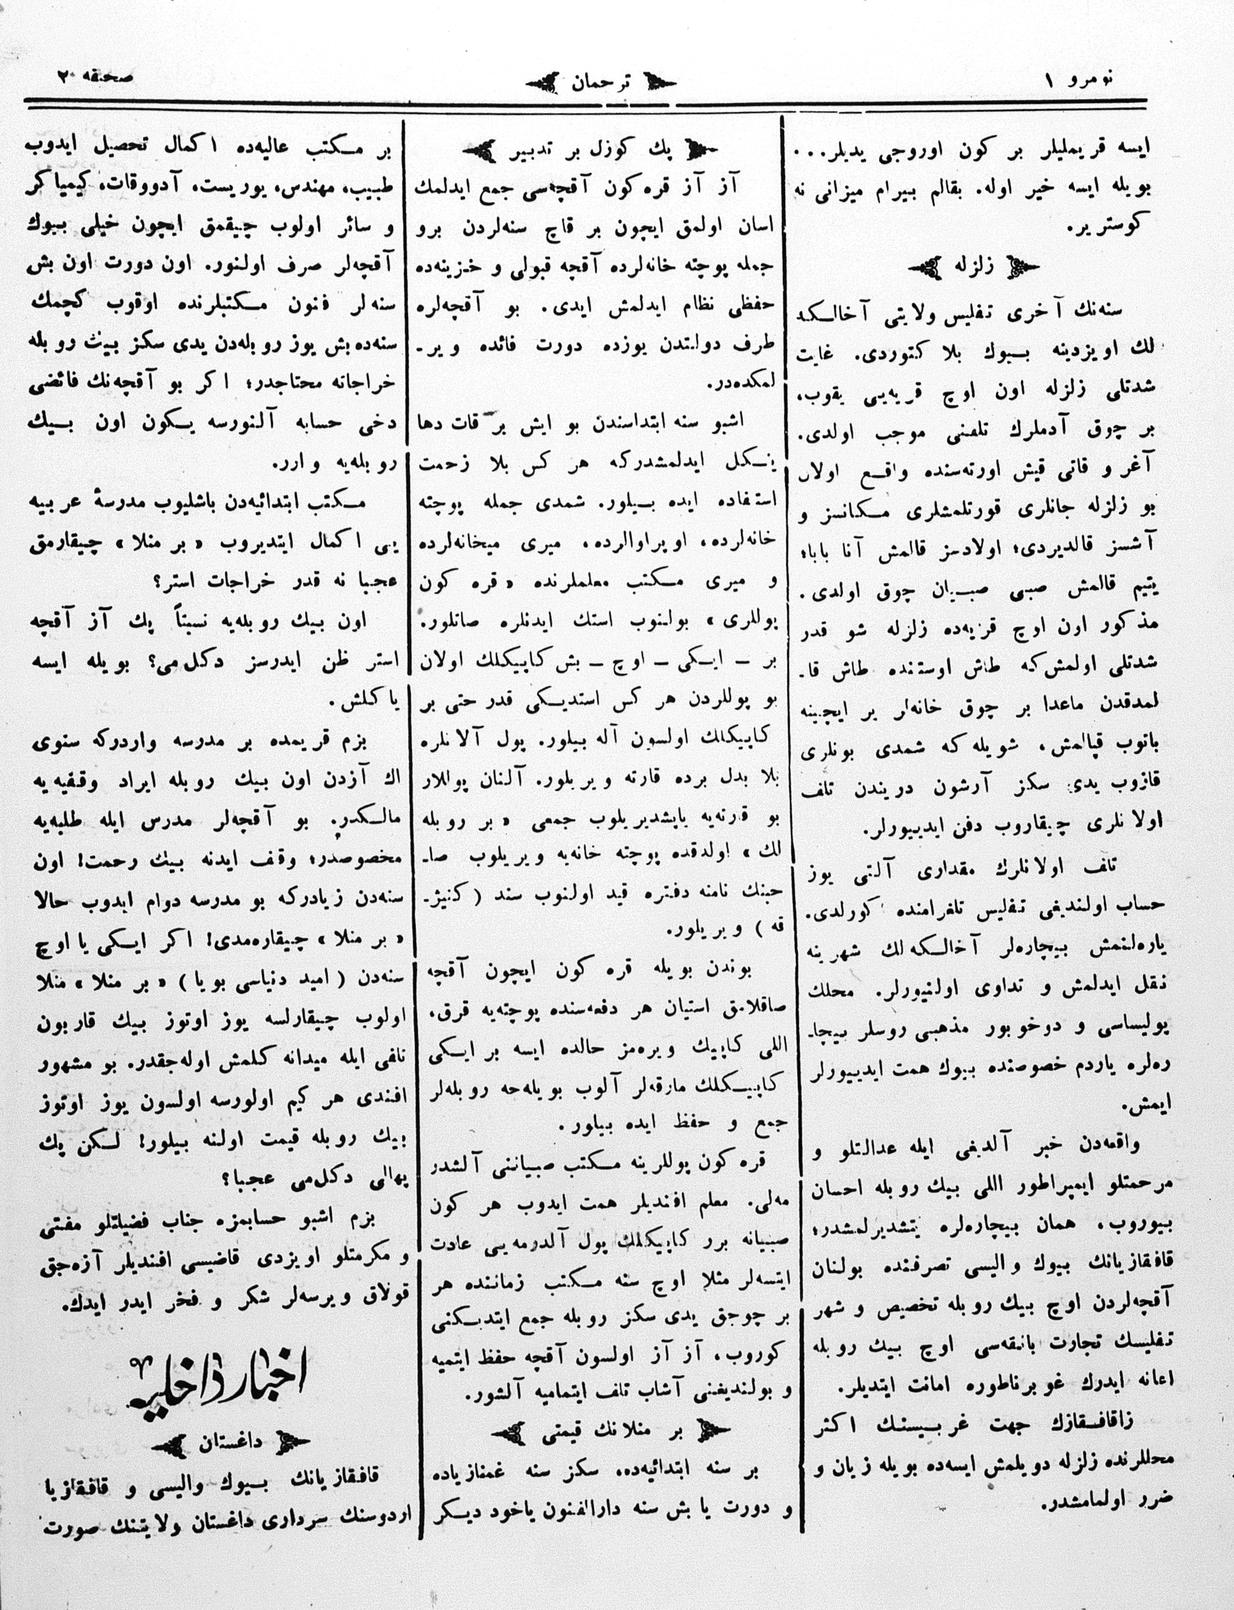 نومرو ۱
ترجمان
صحیفه ۲۰
ایسه قریملیلر بر کون اوروجی یدیلر...
بویله ایسه خیر اوله. بقالم بیرام میزانی نه
کوستریر.
زلزله
سنه‌نك آخری تفلیس ولایتی آخالکه
لك اویزدینه بیوك بلا کتوردی. غایت
شدتلی زلزله اون اوچ قریه‌یی یقوب،
بر چوق آدملرك تلفنی موجب اولدی.
آغر و قاتی قیش اورته‌سنده واقع اولان
بو زلزله جانلری قورتلمشلری مکانسز و
آشسز قالدیردی؛ اولادسز قالمش آنا بابا؛
یتیم قالمش صبی صبیان چوق اولدی.
مذکور اون اوچ قریه‌ده زلزله شو قدر
شدتلی اولمش‌که طاش اوستنده طاش قا-
لمدقدن ماعدا بر چوق خانه‌لر یر ایچینه
باتوب قپالمش، شویله که شمدی بونلری
قازوب یدی سکز آرشون دویندن تلف
اولانلری چیقاروب دفن ایدییورلر.
تلف اولانلرك مقداری آلتی یوز
حساب اولندیغی تفلیس تلغرامنده کورلدی.
یاره‌لنمش بیچاره‌لر آخالکه‌لك شهرینه
نقل ایدلمش و تداوی اولنیورلر. محلك
پولیساسی و دوخوبور مذهبی روسلر بیچا-
ره‌لره یاردم خصوصنده بیوك همت ایدییورلر
ایمش.
واقعه‌دن خبر آلدیغی ایله عدالتلو و
مرحمتلو ایمپراطور اللی بیك روبله احسان
بیوروب، همان بیچاره‌لره یتشدیرلمشدر؛
قافقازیانك بیوك والیسی تصرفنده بولنان
آقچه‌لردن اوچ بیك روبله تخصیص و شهر
تفلیسك تجارت بانقه‌سی اوچ بیك روبله
اعانه ایدرك غوبرناطوره امانت ایتدیلر.
زاقافقازك جهت غربیسنك اکثر
محللرنده زلزله دویلمش ایسه‌ده بویله زیان و
ضرر اولمامشدر.
پك کوزل بر تدبیر
آز آز قره کون آقچه‌سی جمع ایدلمك
اسان اولمق ایچون بر قاچ سنه‌لردن برو
جمله پوچته خانه‌لرده آقچه قبولی و خزینه‌ده
حفظی نظام ایدلمش ایدی. بو آقچه‌لره
طرف دولتدن یوزده دورت فائده ویر-
لمکده‌در.
اشبو سنه ابتداسندن بو ایش بر قات دها
ینکل ایدلمشدرکه هر کس بلا زحمت
استفاده ایده بیلور. شمدی جمله پوچته
خانه‌لرده، اوپراوالرده، میری میخانه‌لرده
و میری مکتب معلملرنده «قره کون
پوللری» بولنوب استك ایدنلره صاتلور.
بر - ایکی - اوچ - بش کاپیکلك اولان
بو پوللردن هر کس استدیکی قدر حتی بر
کاپیکلك اولسون آله بیلور. پول آلانلره
بلا بدل برده قارته ویریلور. آلنان پوللار
بو قرته‌یه یاپشدیریلوب جمعی «بر روبله
لك» اولدقده پوچته خانه‌یه ویریلوب صا-
حبنك نامنه دفتره قید اولنوب سند (کنیژ-
قه) ویریلور.
بوندن بویله قره کون ایچون آقچه
صاقلامق استیان هر دفعه‌سنده پوچته‌یه قرق،
اللی کاپیك ویره‌مز حالده ایسه بر ایکی
کاپیکلك مارقه‌لر آلوب بویله‌جه روبله‌لر
جمع و حفظ ایده بیلور.
قره کون پوللرینه مکتب صبیاننی آلشدر
مه‌لی. معلم افندیلر همت ایدوب هر کون
صبیانه برر کاپیکلك پول آلدرمه‌یی عادت
ایتسه‌لر مثلا اوچ سنه مکتب زماننده هر
بر چوجق یدی سکز روبله جمع ایتدیکنی
کوروب، آز آز اولسون آقچه حفظ ایتمیه
و بولندیغنی آشاب تلف ایتمامیه آلشور.
بر منلانك قیمتی
بر سنه ابتدائیه‌ده، سکز سنه غمنازیاده
و دورت یا بش سنه دارالفنون یاخود دیکر
بر مکتب عالیه‌ده اکمال تحصیل ایدوب
طبیب، مهندس، یوریست، آدووقات، کیمیاکر
و سائر اولوب چیقمق ایچون خیلی بیوك
آقچه‌لر صرف اولنور. اون دورت اون بش
سنه‌لر فنون مکتبلرنده اوقوب کچمك
سنه‌ده بش یوز روبله‌دن یدی سکز بیڭ روبله
خراجاته محتاجدر؛ اکر بو آقچه‌نك فائضی
دخی حسابه آلنورسه یکون اون بیك
روبله‌یه وارر.
مکتب ابتدائیه‌دن باشلیوب مدرسهٔ عربیه
یی اکمال ایتدیروب «بر منلا» چیقارمق
عجبا نه قدر خراجات استر؟
اون بیك روبله‌یه نسبتاً پك آز آقچه
استر ظن ایدرسز دکلمی؟ بویله ایسه
یاکلش.
بزم قریمده بر مدرسه واردرکه سنوی
اك آزدن اون بیك روبله ایراد وقفیه‌یه
مالکدر. بو آقچه‌لر مدرس ایله طلبه‌یه
مخصوصدر؛ وقف ایدنه بیك رحمت! اون
سنه‌دن زیادرکه بو مدرسه دوام ایدوب حالا
«بر منلا» چیقاره‌مدی! اکر ایکی یا اوچ
سنه‌دن (امید دنیاسی بویا) «بر منلا» منلا
اولوب چیقارلسه یوز اوتوز بیك قاربون
نافی ایله میدانه کلمش اوله‌جقدر. بو مشهور
افندی هر کیم اولورسه اولسون یوز اوتوز
بیك روبله قیمت اولنه بیلور! لکن پك
پهالی دکلمی عجبا؟
بزم اشبو حسابمزه جناب فضیلتلو مفتی
و مکرمتلو اویزدی قاضیسی افندیلر آزه‌جق
قولاق ویرسه‌لر شکر و فخر ایدر ایدك.
اخبار داخلیه
داغستان
قافقازیانك بیوك والیسی و قافقازیا
اردوسنك سرداری داغستان ولایتنك صورت